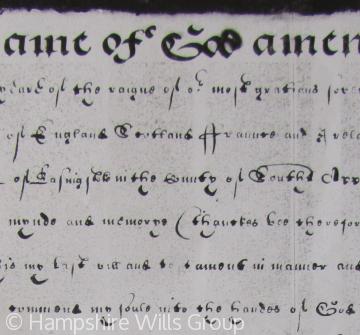 ame of God amen
yeare of the raigne of or most gratious
of England Scotland ffraunce and Irela
of in the County of South
mynde and memorye (thanckes bee therefor
is my last will and testament in manner and
commend my soule into the handes of God
© Hampshire Wills Group